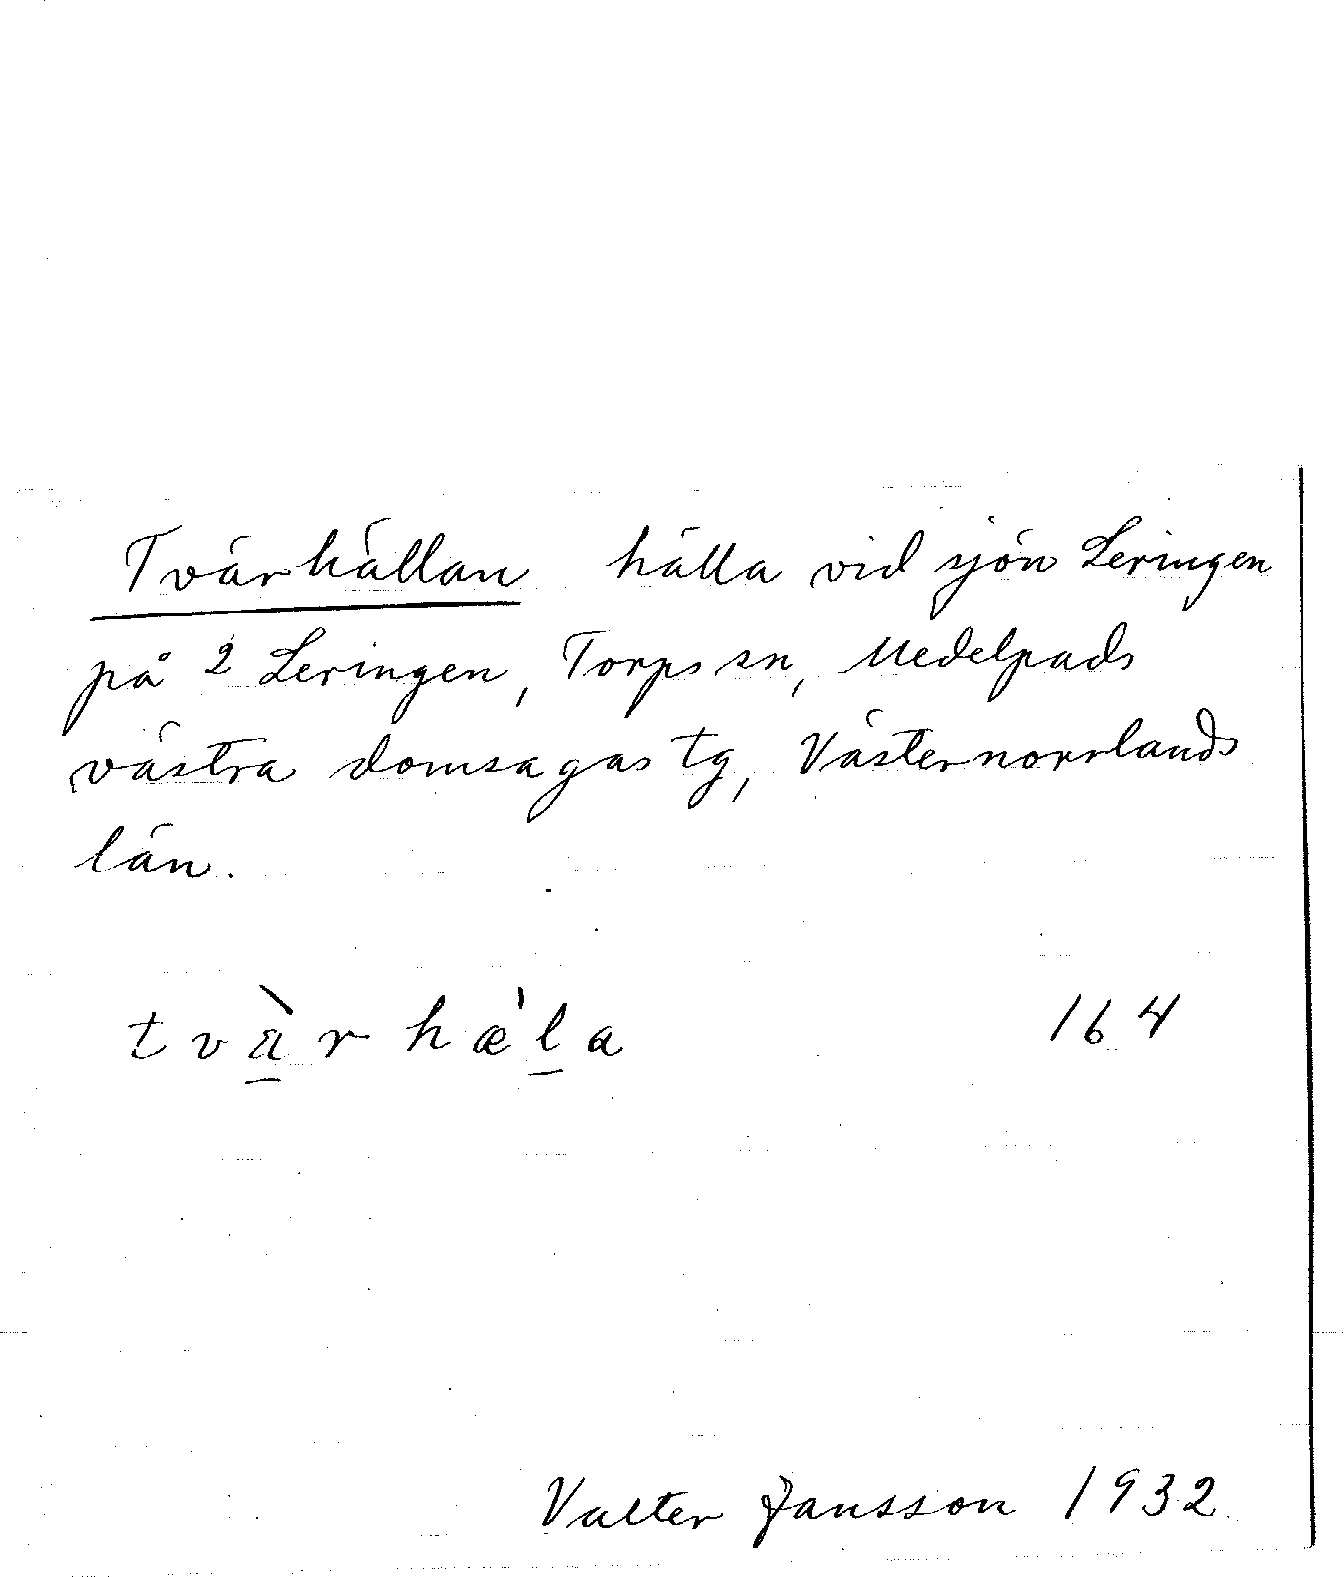 Tvärhällan hälla vid sjön Leringen
på 2 Leringen, Torps sn, Medelpads
västra domsagas tg, Västernorrlands
län.
tvä̀rhæ̍la 164
Valter Jansson 1932